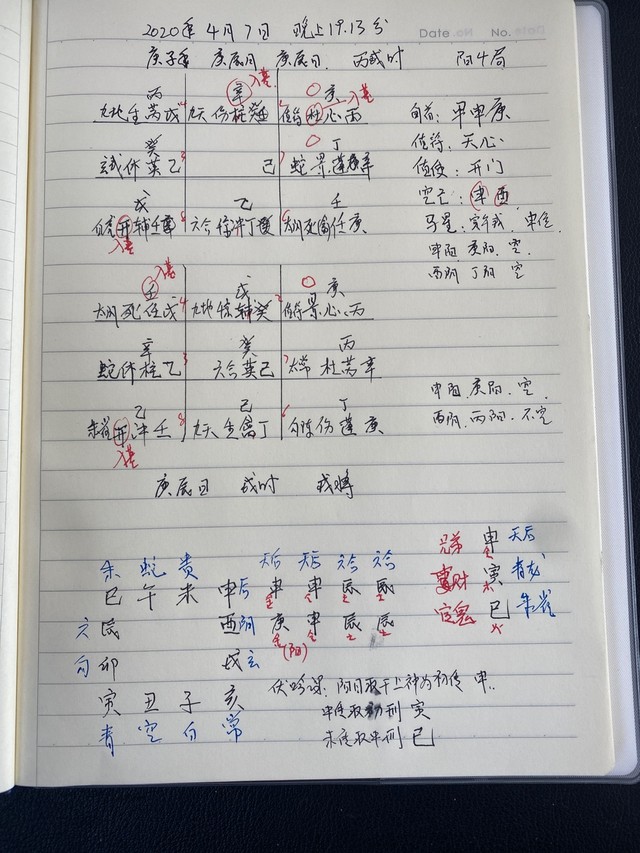 Date No. No. Date
2020年 4月 7日 晚上19.13分
庚子年 庚辰月 庚辰日 丙戌时 阳4局
丙 辛 入墓 庚 入墓
九地生芮戊 九天伤柱癸 值符杜心丙 旬首: 甲申庚
癸 丁 值符: 天心
休英乙 己 蛇景蓬辛 值使: 开门
戊 乙 壬 空亡: 申酉
开辅壬 六合惊冲丁 死任庚 马星:
入墓 申阳 庚阳 空
酉阴 丁阳 空
入墓 戊 庚
死任戊 九地惊辅癸 值符景心丙
辛 癸 丙
蛇休柱乙 六合英己 杜芮辛 申阳 庚阳 空
乙 己 丁 酉阴 丙阳 不空
开冲壬 九天生禽丁 伤蓬庚
入墓
庚辰日 戌时 戌将
兄弟 申 天后
金
朱 蛇 贵 天后 天后 六合 六合 妻财 寅 青龙
木
巳 午 未 申后 申 申 辰 辰 官鬼 巳 朱雀
金 金 土 土 火
六 辰 酉阴 庚 申 辰 辰
金 金 土 土
(阳)
勾 卯 戌玄
寅 丑 子 亥 伏吟课: 阳日取干上神为初传 申..
青 空 白 常 中传取初刑 寅
末传取中刑 巳